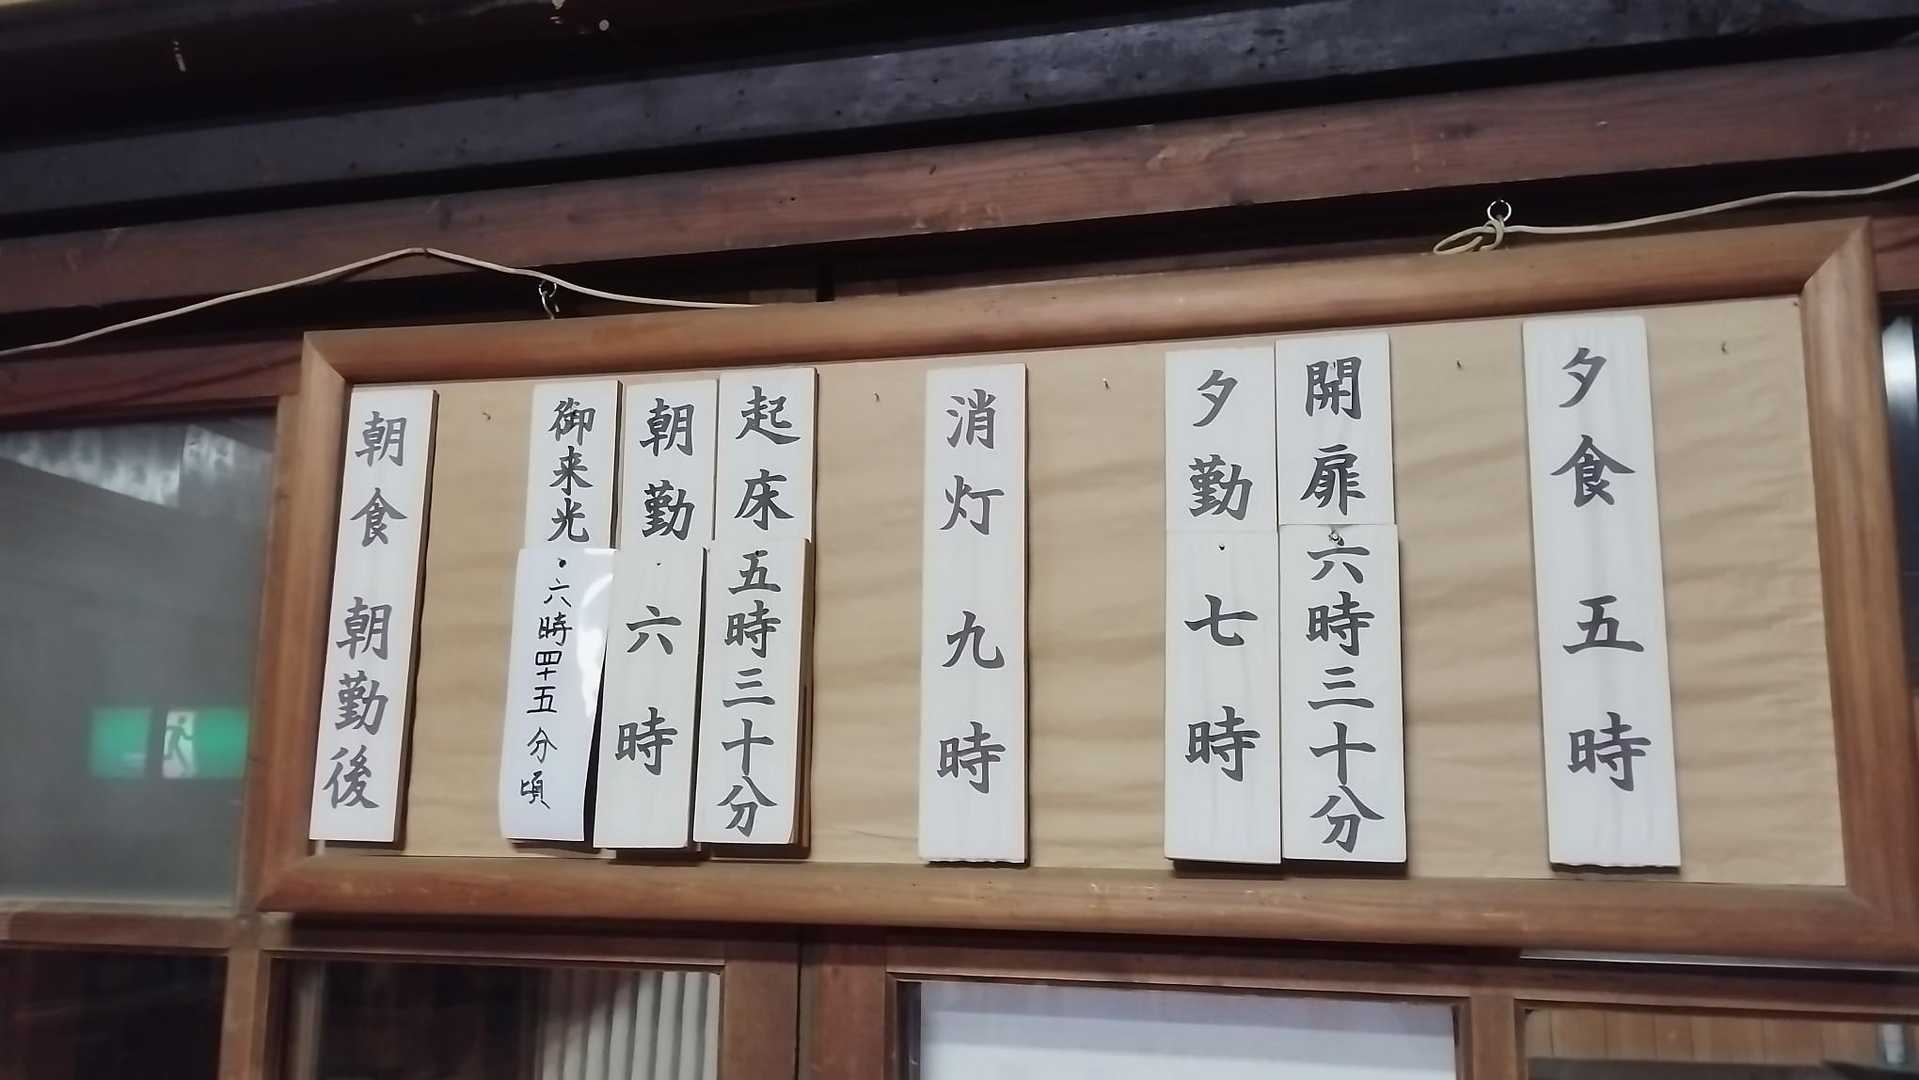 夕食 五時
開扉 六時三十分
夕勤 七時
消灯 九時
起床 五時三十分
朝勤 六時
御来光 六時四十五分頃
朝食 朝勤後